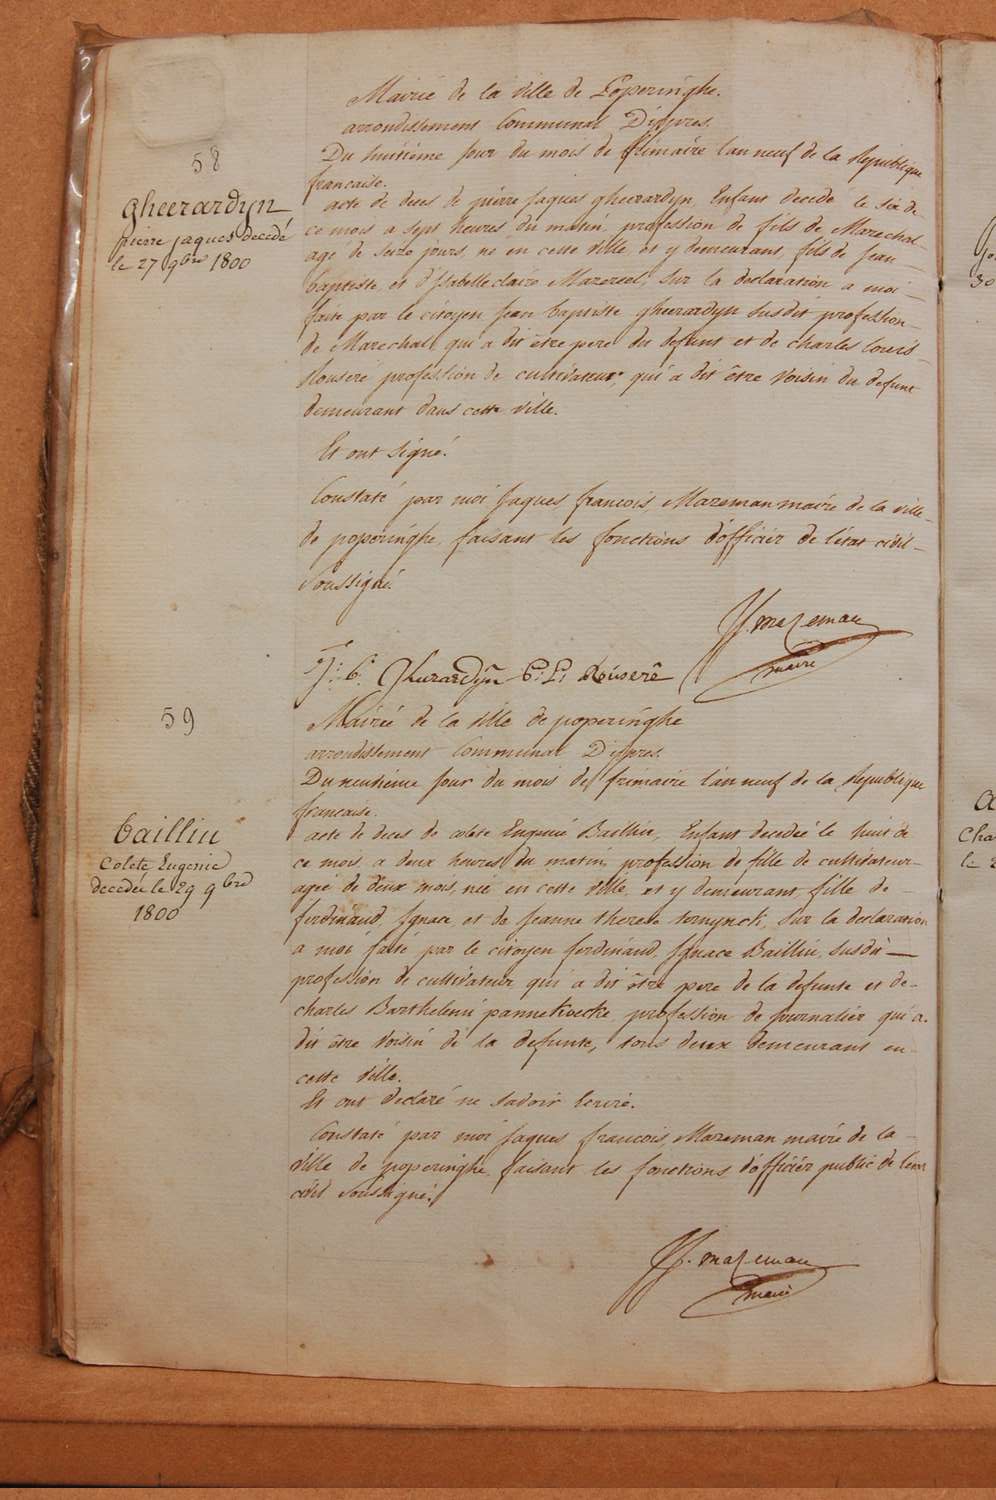 Mairie de la ville de Poperinghe.
arrondissement Communal D'ippres.
58
Du huitieme jour du mois de frimaire l'an neuf de la Republique
francaise.
gheerardyn
pierre jaques decedé
le 27 9bre 1800
acte de deces de pierre jaques gheerardyn, Enfant decedé le six de
ce mois a sept heures du matin, profession de fils de Marechal
agé de seize jours, né en cette ville, et y demeurant, fils de jean
baptiste, et d'Isabelle claire Mazereel, sur la declaration a moi
faite par le citoyen jean baptiste gheerardyn susdit profession
de Marechal qui a dit être pere du defunt et de charles louis
profession de cultivateur qui a dit être voisin du defunt
demeurant dans cette ville.
Et ont signé.
Constaté par moi jaques francois Mazeman maire de la ville
de poperinghe, faisant les fonctions d'officier de l'etat civil
soussigné.
JJ. mazeman
maire
J: b: Gheerardÿn
59
Mairie de la ville de poperinghe
arrondissement Communal D'ippres.
Du neuvieme jour du mois de frimaire l'an neuf de la Republique
francaise.
baillin
Colete Eugenie
decedée le 29 9bre
1800
acte de deces de colete Eugenie Baillin, Enfant decedée le huit de
ce mois, a deux heures du matin, profession de fille de cultivateur
agée de deux mois, née en cette ville, et y demeurant, fille de
ferdinand Ignace et de jeanne therese, sur la declaration
a moi faite par le citoyen ferdinand Ignace Baillin, susdit
profession de cultivateur qui a dit être pere de la defunte et de
charles Barthelemi pannekoecke, profession de journalier qui a
dit être voisin de la defunte, tous deux demeurans en
cette ville.
Et ont declaré ne savoir ecrire.
Constaté par moi jaques francois Mazeman maire de la
ville de poperinghe, faisant les fonctions d'officier public de l'etat
civil soussigné.
JJ. mazeman
maire
30
A
Cha
le 2